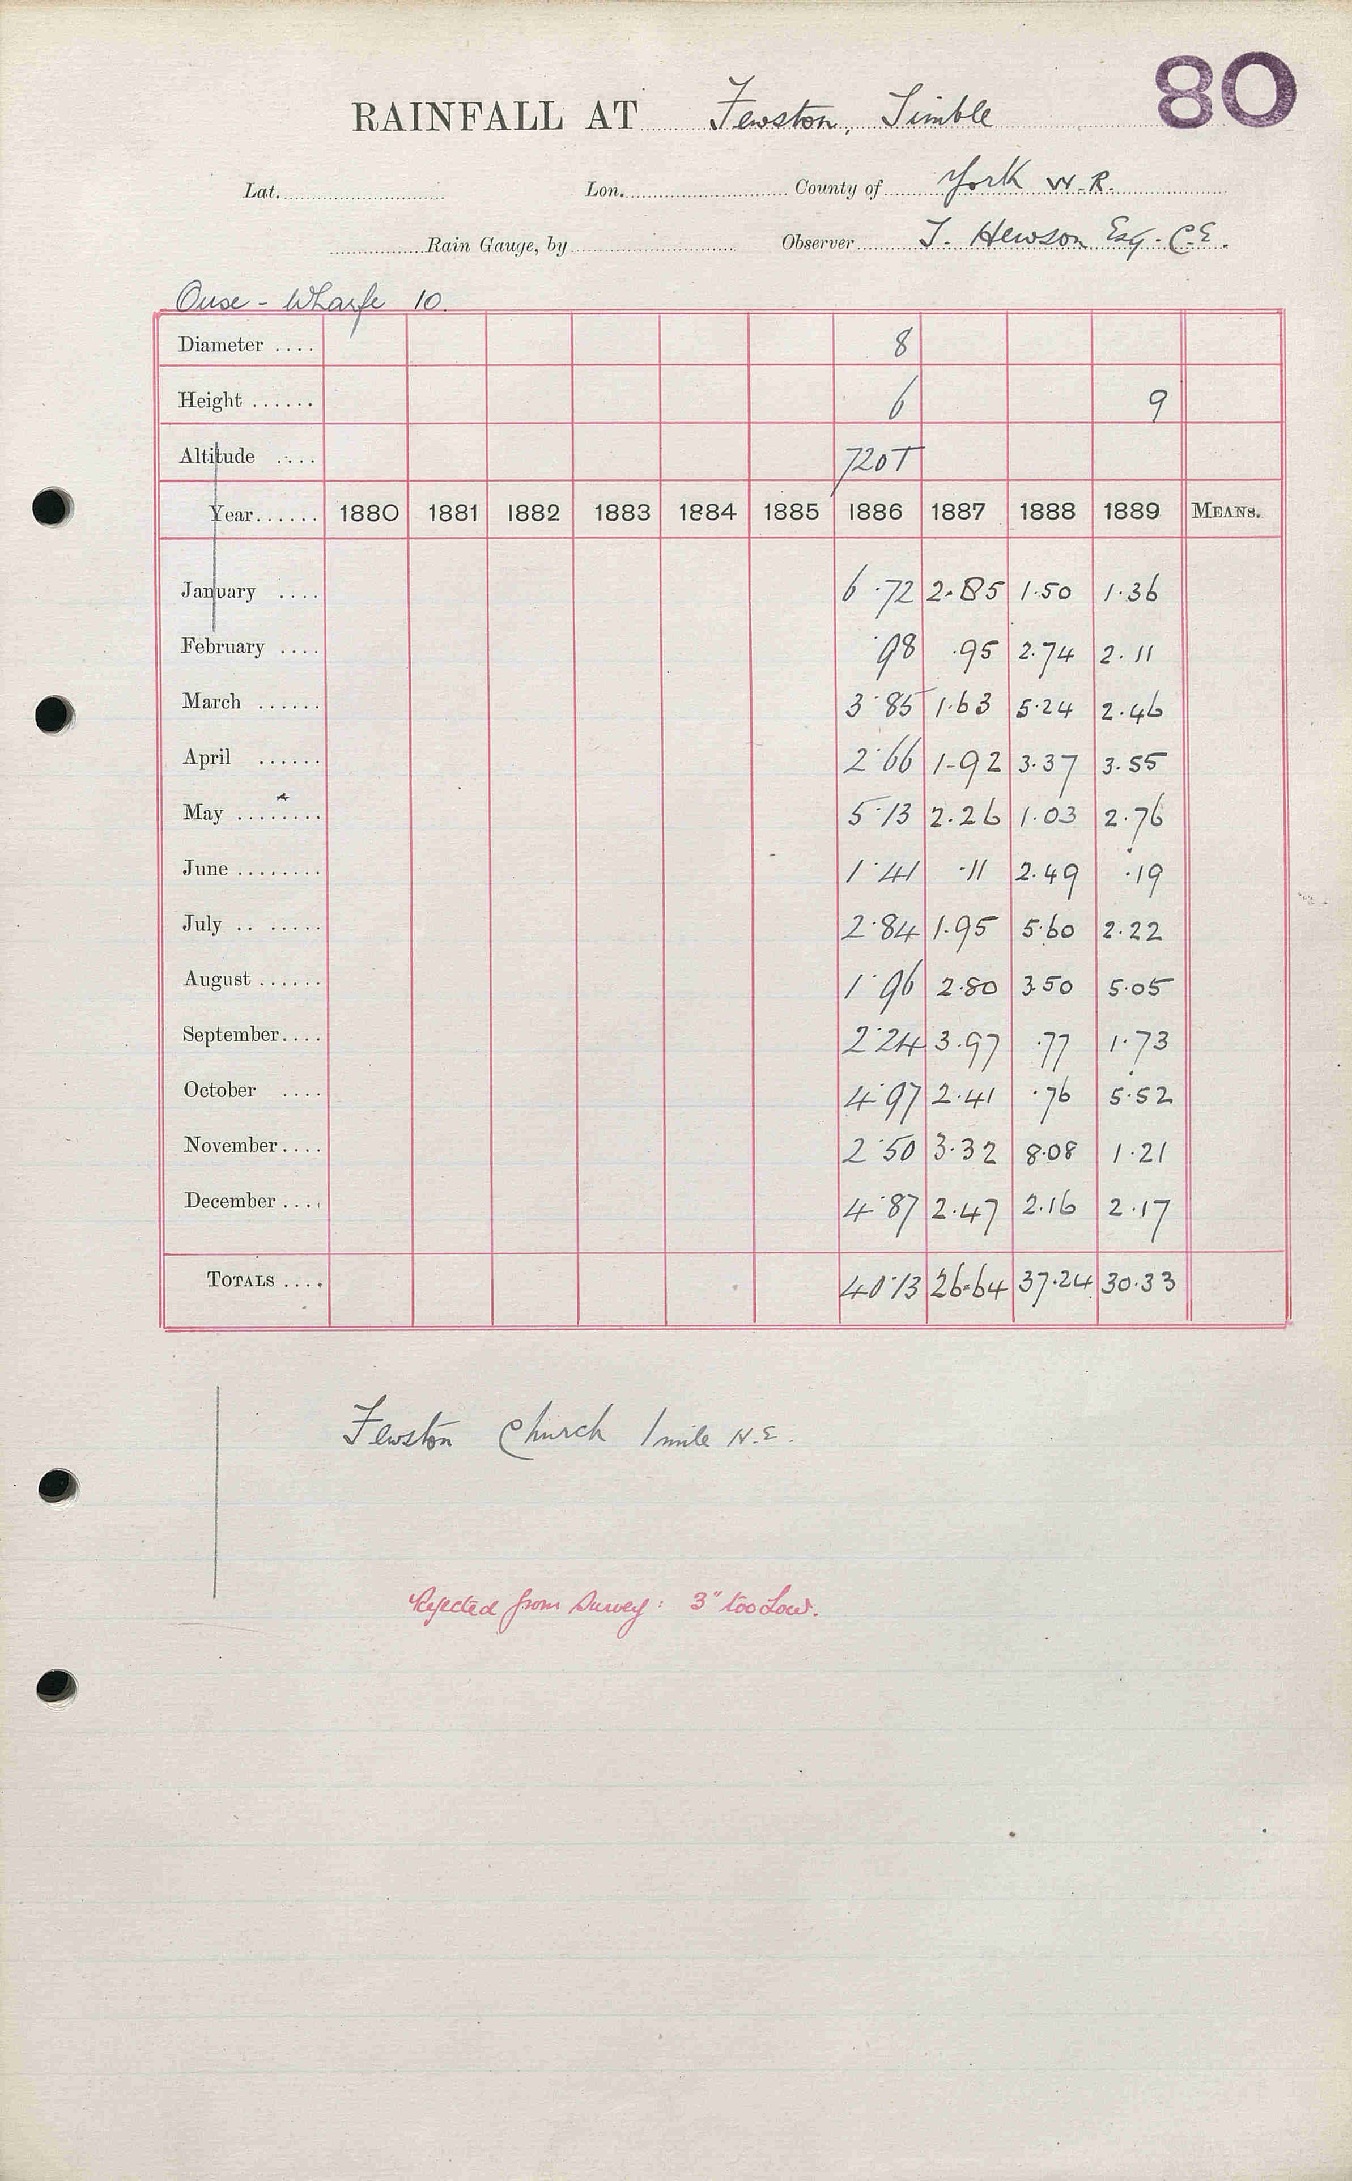 80
RAINFALL AT Fewston, Timble
Lat. Lon. County of York W.R.
Rain Gauge, by Observer T. Hewson Esq. C.E.
Ouse - Wharfe 10.
Diameter .... 8
Height ...... 6 9
Altitude .... 720T
Year...... 1880 1881 1882 1883 1884 1885 1886 1887 1888 1889 MEANS.
January .... 6.72 2.85 1.50 1.36
February .... .98 .95 2.74 2.11
March ...... 3.85 1.63 5.24 2.46
April ...... 2.66 1.92 3.37 3.55
May ........ 5.13 2.26 1.03 2.76
June ........ 1.41 .11 2.49 .19
July .. ..... 2.84 1.95 5.60 2.22
August ...... 1.96 2.80 3.50 5.05
September.... 2.24 3.97 .77 1.73
October .... 4.97 2.41 .76 5.52
November.... 2.50 3.32 8.08 1.21
December .... 4.87 2.47 2.16 2.17
TOTALS .... 40.13 26.64 37.24 30.33
Fewston Church 1 mile N.E.
Rejected from Survey: 3" too Low.